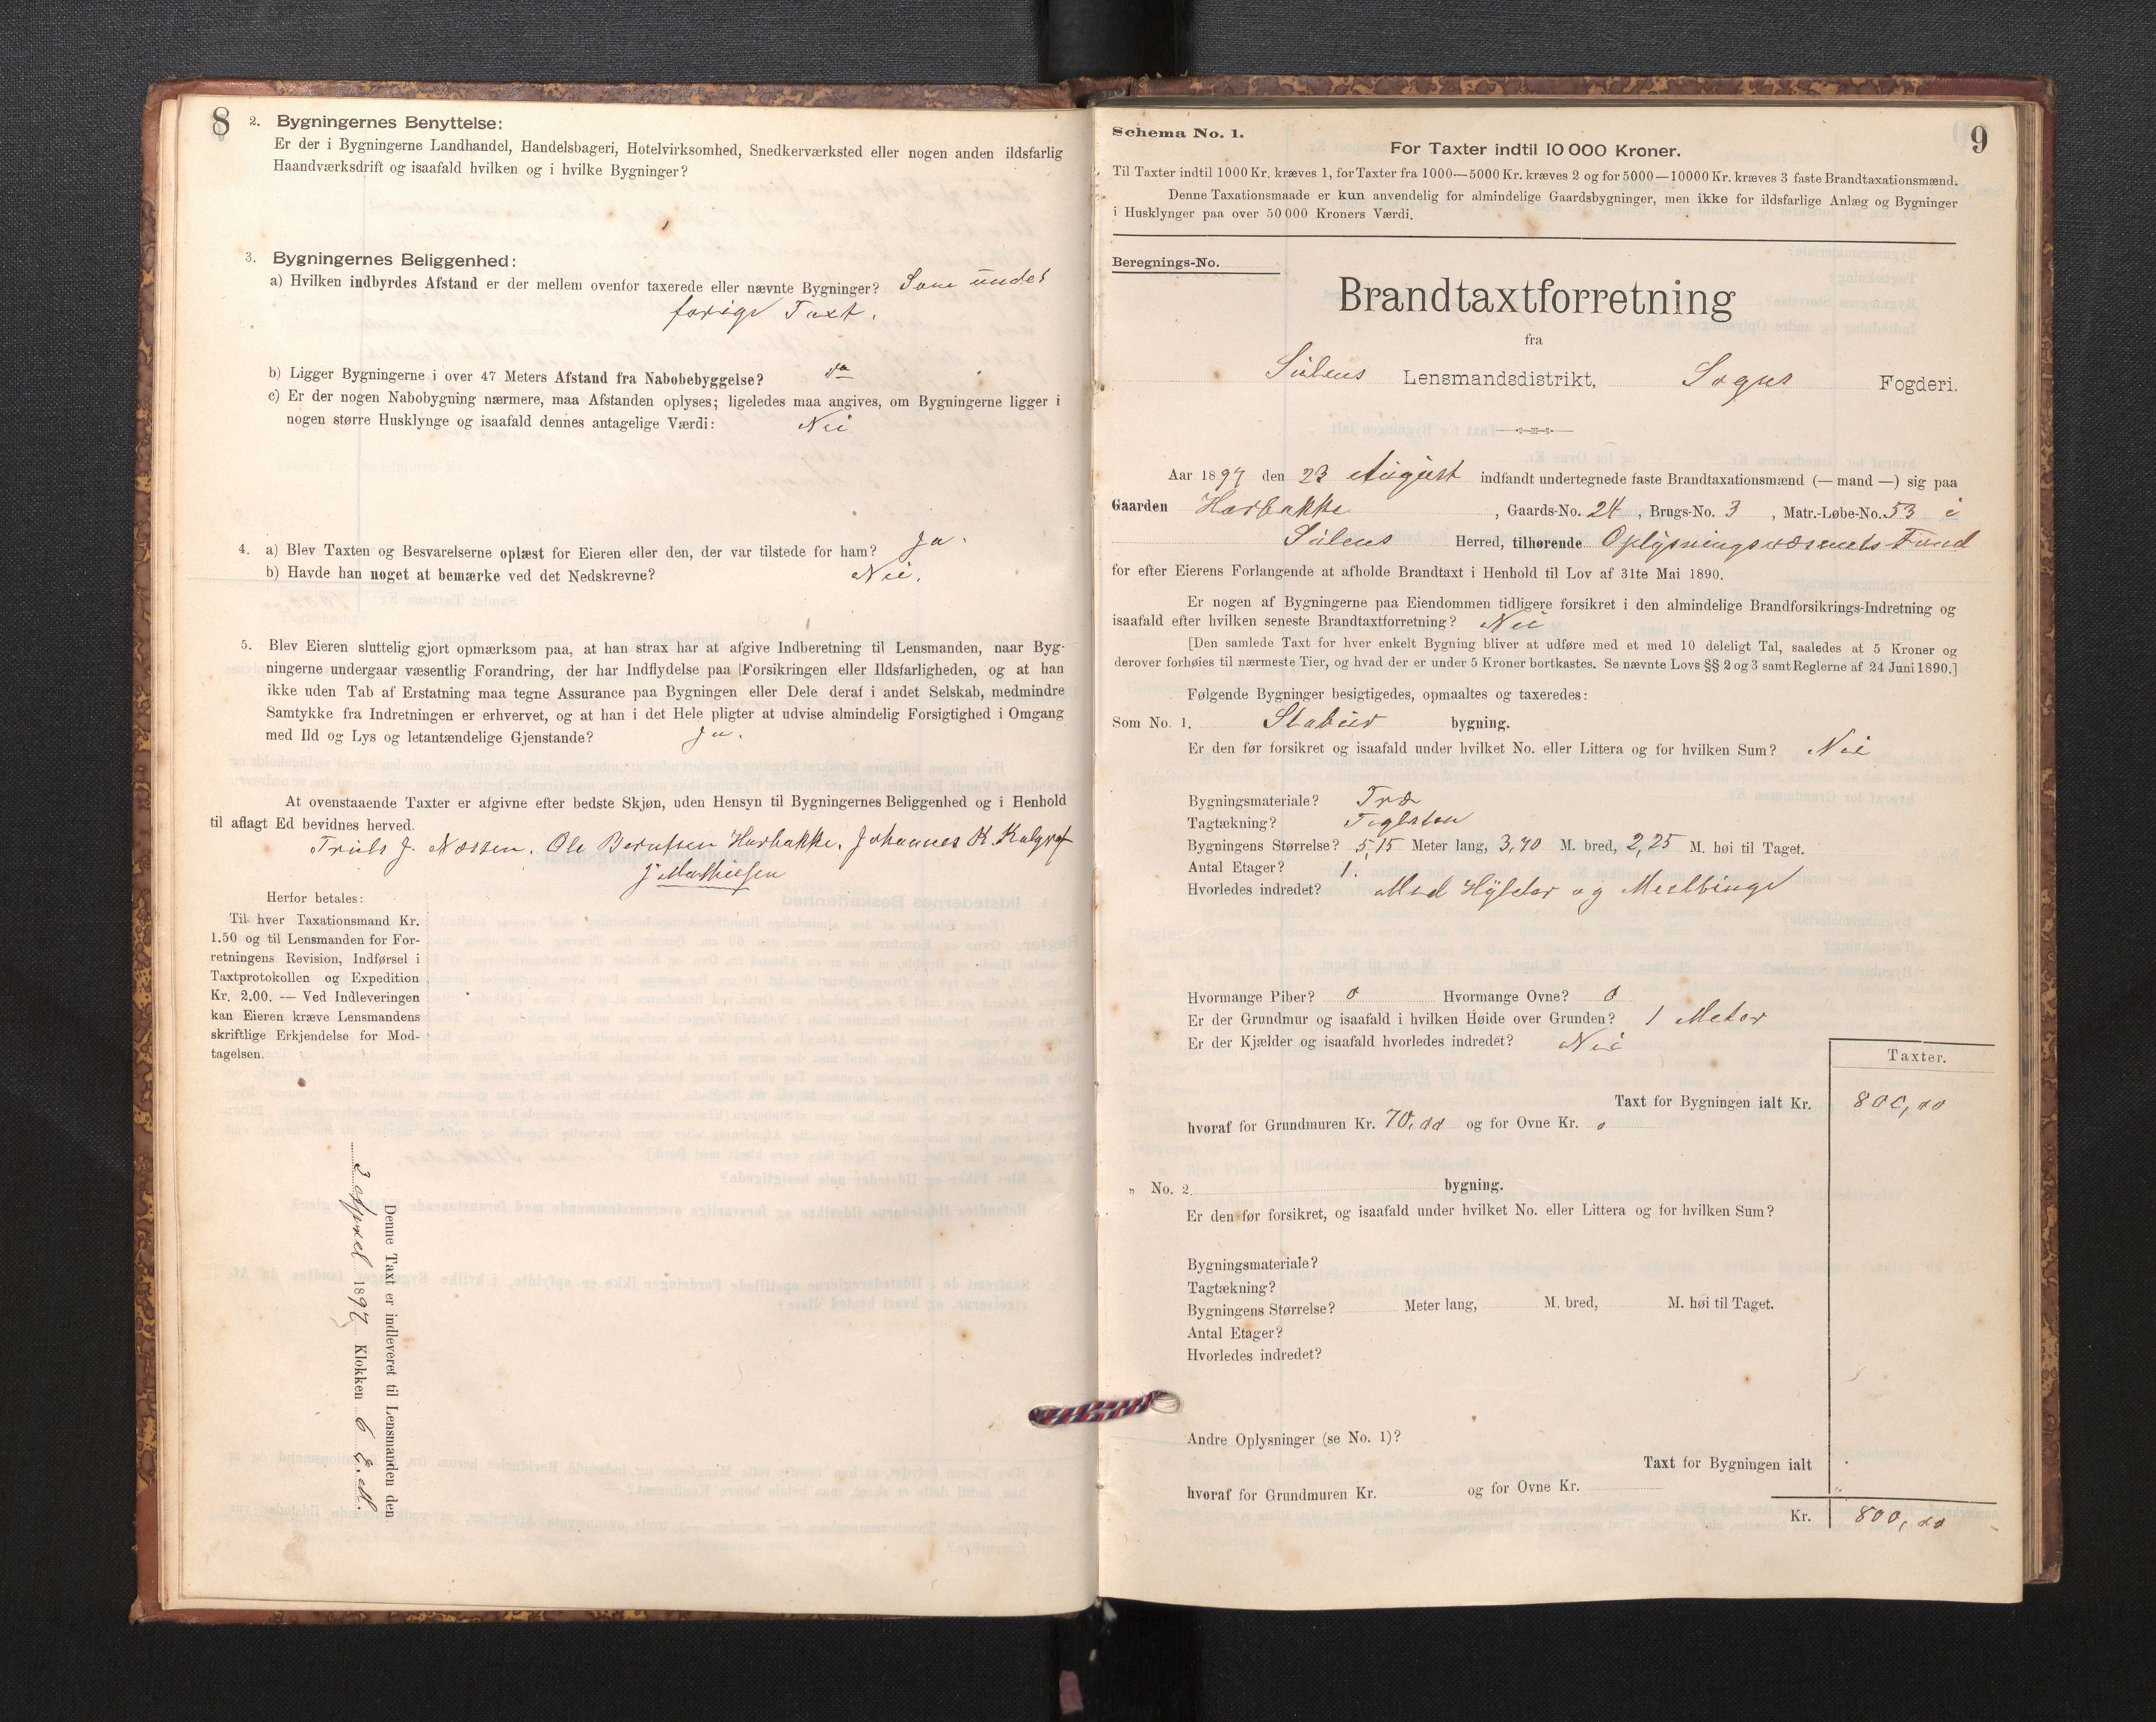 8
2. Bygningernes Benyttelse:
Er der i Bygningerne Landhandel, Handelsbageri, Hotelvirksomhed, Snedkerværksted eller nogen anden ildsfarlig
Haandværksdrift og isaafald hvilken og i hvilke Bygninger?
3. Bygningernes Beliggenhed:
a) Hvilken indbyrdes Afstand er der mellem ovenfor taxerede eller nævnte Bygninger? Som under
forige Taxt.
b) Ligger Bygningerne i over 47 Meters Afstand fra Nabobebyggelse? Ja
c) Er der nogen Nabobygning nærmere, maa Afstanden oplyses; ligeledes maa angives, om Bygningerne ligger i
nogen større Husklynge og isaafald dennes antagelige Værdi: Nei
4. a) Blev Taxten og Besvarelserne oplæst for Eieren eller den, der var tilstede for ham? Ja.
b) Havde han noget at bemærke ved det Nedskrevne? Nei.
5. Blev Eieren sluttelig gjort opmærksom paa, at han strax har at afgive Indberetning til Lensmanden, naar Byg-
ningerne undergaar væsentlig Forandring, der har Indflydelse paa Forsikringen eller Ildsfarligheden, og at han
ikke uden Tab af Erstatning maa tegne Assurance paa Bygningen eller Dele deraf i andet Selskab, medmindre
Samtykke fra Indretningen er erhvervet, og at han i det Hele pligter at udvise almindelig Forsigtighed i Omgang
med Ild og Lys og letantændelige Gjenstande? Ja.
At ovenstaaende Taxter er afgivne efter bedste Skjøn, uden Hensyn til Bygningernes Beliggenhed og i Henhold
til aflagt Ed bevidnes herved.
Truls J. Næssen. Ole Berntsen Harbakke. Johannes K.
J. Mathiesen
Herfor betales:
Til hver Taxationsmand Kr.
1.50 og til Lensmanden for For-
retningens Revision, Indførsel i
Taxtprotokollen og Expedition
Kr. 2.00. — Ved Indleveringen
kan Eieren kræve Lensmandens
skriftlige Erkjendelse for Mod-
tagelsen.
Denne Taxt er indleveret til Lensmanden den
3 1897 Klokken 6 E.M.
9
Schema No. 1.
For Taxter indtil 10 000 Kroner.
Til Taxter indtil 1000 Kr. kræves 1, for Taxter fra 1000—5000 Kr. kræves 2 og for 5000—10000 Kr. kræves 3 faste Brandtaxationsmænd.
Denne Taxationsmaade er kun anvendelig for almindelige Gaardsbygninger, men ikke for ildsfarlige Anlæg og Bygninger
i Husklynger paa over 50 000 Kroners Værdi.
Beregnings-No.
Brandtaxtforretning
fra
Sulens Lensmandsdistrikt, Sogns Fogderi.
Aar 1897 den 23 August indfandt undertegnede faste Brandtaxationsmænd (— mand —) sig paa
Gaarden Harbakke, Gaards-No. 24, Brugs-No. 3, Matr.-Løbe-No. 53 i
Sulens Herred, tilhørende Oplysningsvæsenets Fond
for efter Eierens Forlangende at afholde Brandtaxt i Henhold til Lov af 31te Mai 1890.
Er nogen af Bygningerne paa Eiendommen tidligere forsikret i den almindelige Brandforsikrings-Indretning og
isaafald efter hvilken seneste Brandtaxtforretning? Nei
[Den samlede Taxt for hver enkelt Bygning bliver at udføre med et med 10 deleligt Tal, saaledes at 5 Kroner og
derover forhøies til nærmeste Tier, og hvad der er under 5 Kroner bortkastes. Se nævnte Lovs §§ 2 og 3 samt Reglerne af 24 Juni 1890.]
Følgende Bygninger besigtigedes, opmaaltes og taxeredes:
Som No. 1. Stabur bygning.
Er den før forsikret og isaafald under hvilket No. eller Littera og for hvilken Sum? Nei
Bygningsmateriale? Træ
Tagtækning? Teglsten
Bygningens Størrelse? 5,15 Meter lang, 3,70 M. bred, 2,25 M. høi til Taget.
Antal Etager? 1.
Hvorledes indredet? Med Hylder og Meelbinge
Hvormange Piber? 0 Hvormange Ovne? 0
Er der Grundmur og isaafald i hvilken Høide over Grunden? 1 Meter
Er der Kjælder og isaafald hvorledes indredet? Nei
Taxter.
Taxt for Bygningen ialt Kr. 800,00
hvoraf for Grundmuren Kr. 70,00 og for Ovne Kr. 0
" No. 2 bygning.
Er den før forsikret, og isaafald under hvilket No. eller Littera og for hvilken Sum?
Bygningsmateriale?
Tagtækning?
Bygningens Størrelse? Meter lang, M. bred, M. høi til Taget.
Antal Etager?
Hvorledes indredet?
Andre Oplysninger (se No. 1)?
Taxt for Bygningen ialt
hvoraf for Grundmuren Kr. og for Ovne Kr.
Kr. 800,00